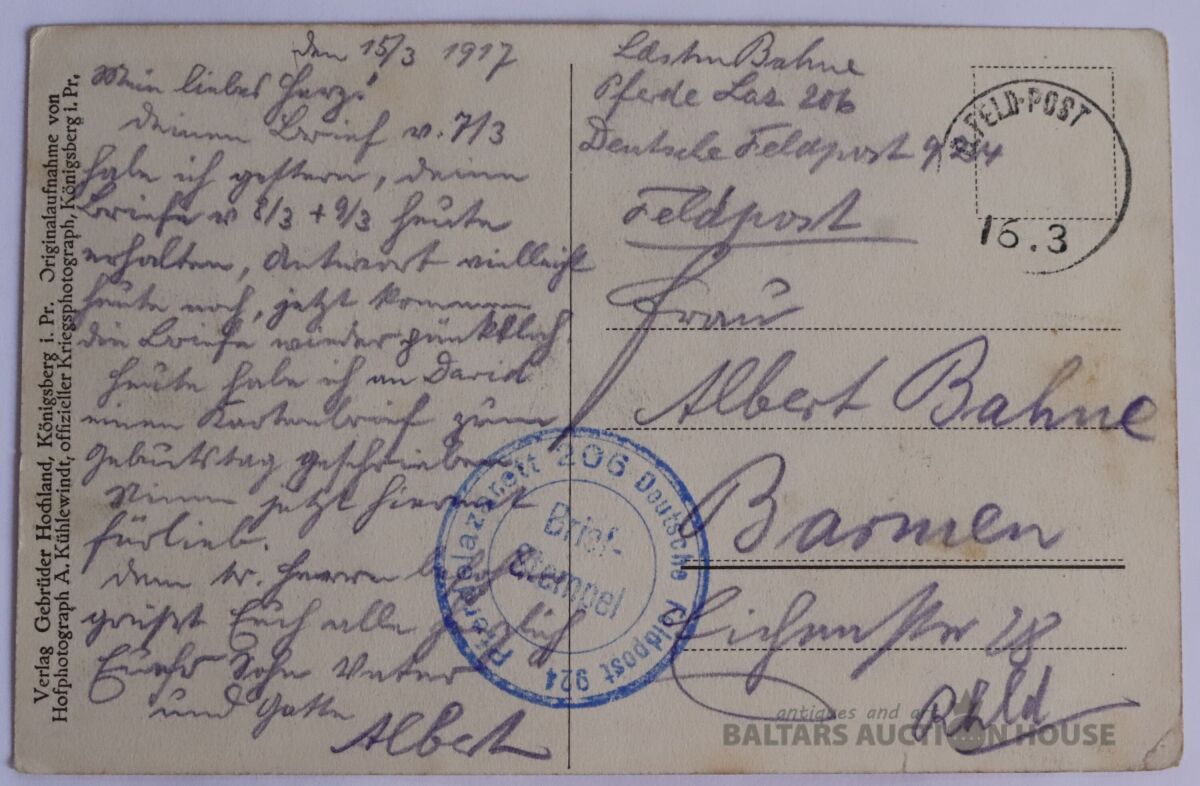 den 15/3 1917
Mein liebes Herz!
Deinen Brief v. 7/3
habe ich gestern, deine
Briefe v 8/3 + 9/3 heute
erhalten, Antwort vielleicht
heute noch, jetzt kommen
die Briefe wieder pünktlich.
Heute habe ich an David
einen Kartenbrief zum
Geburtstag geschrieben
Nimm jetzt hiermit
fürlieb.
dem tr. Herrn
grüßt Euch alle herzlich
Euer Sohn Vater
und Gatte
Albert
Bahne
Pferde Laz. 206
Deutsche Feldpost 924
Feldpost
Frau
Albert Bahne
Barmen
Eichenstr 28
Rhld
FELD-POST
16.3
Pferdelazarett 206 Deutsche Feldpost 924
Brief-
stempel
Verlag Gebrüder Hochland, Königsberg i. Pr. Originalaufnahme von
Hofphotograph A. Kühlewindt, offizieller Kriegsphotograph, Königsberg i. Pr.
antiques and art
BALTARS AUCTION HOUSE